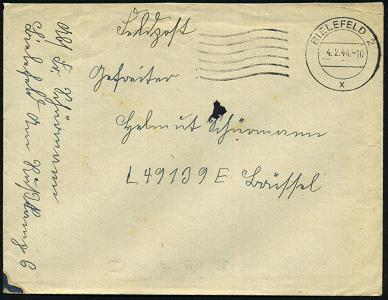 Feldpost
BIELEFELD 2
4.2.44.-10
x
Gefreiter
Helmut Schürmann
L49139E Brüssel
Abs. Fr. Schürmann
Bielefeld Am
6